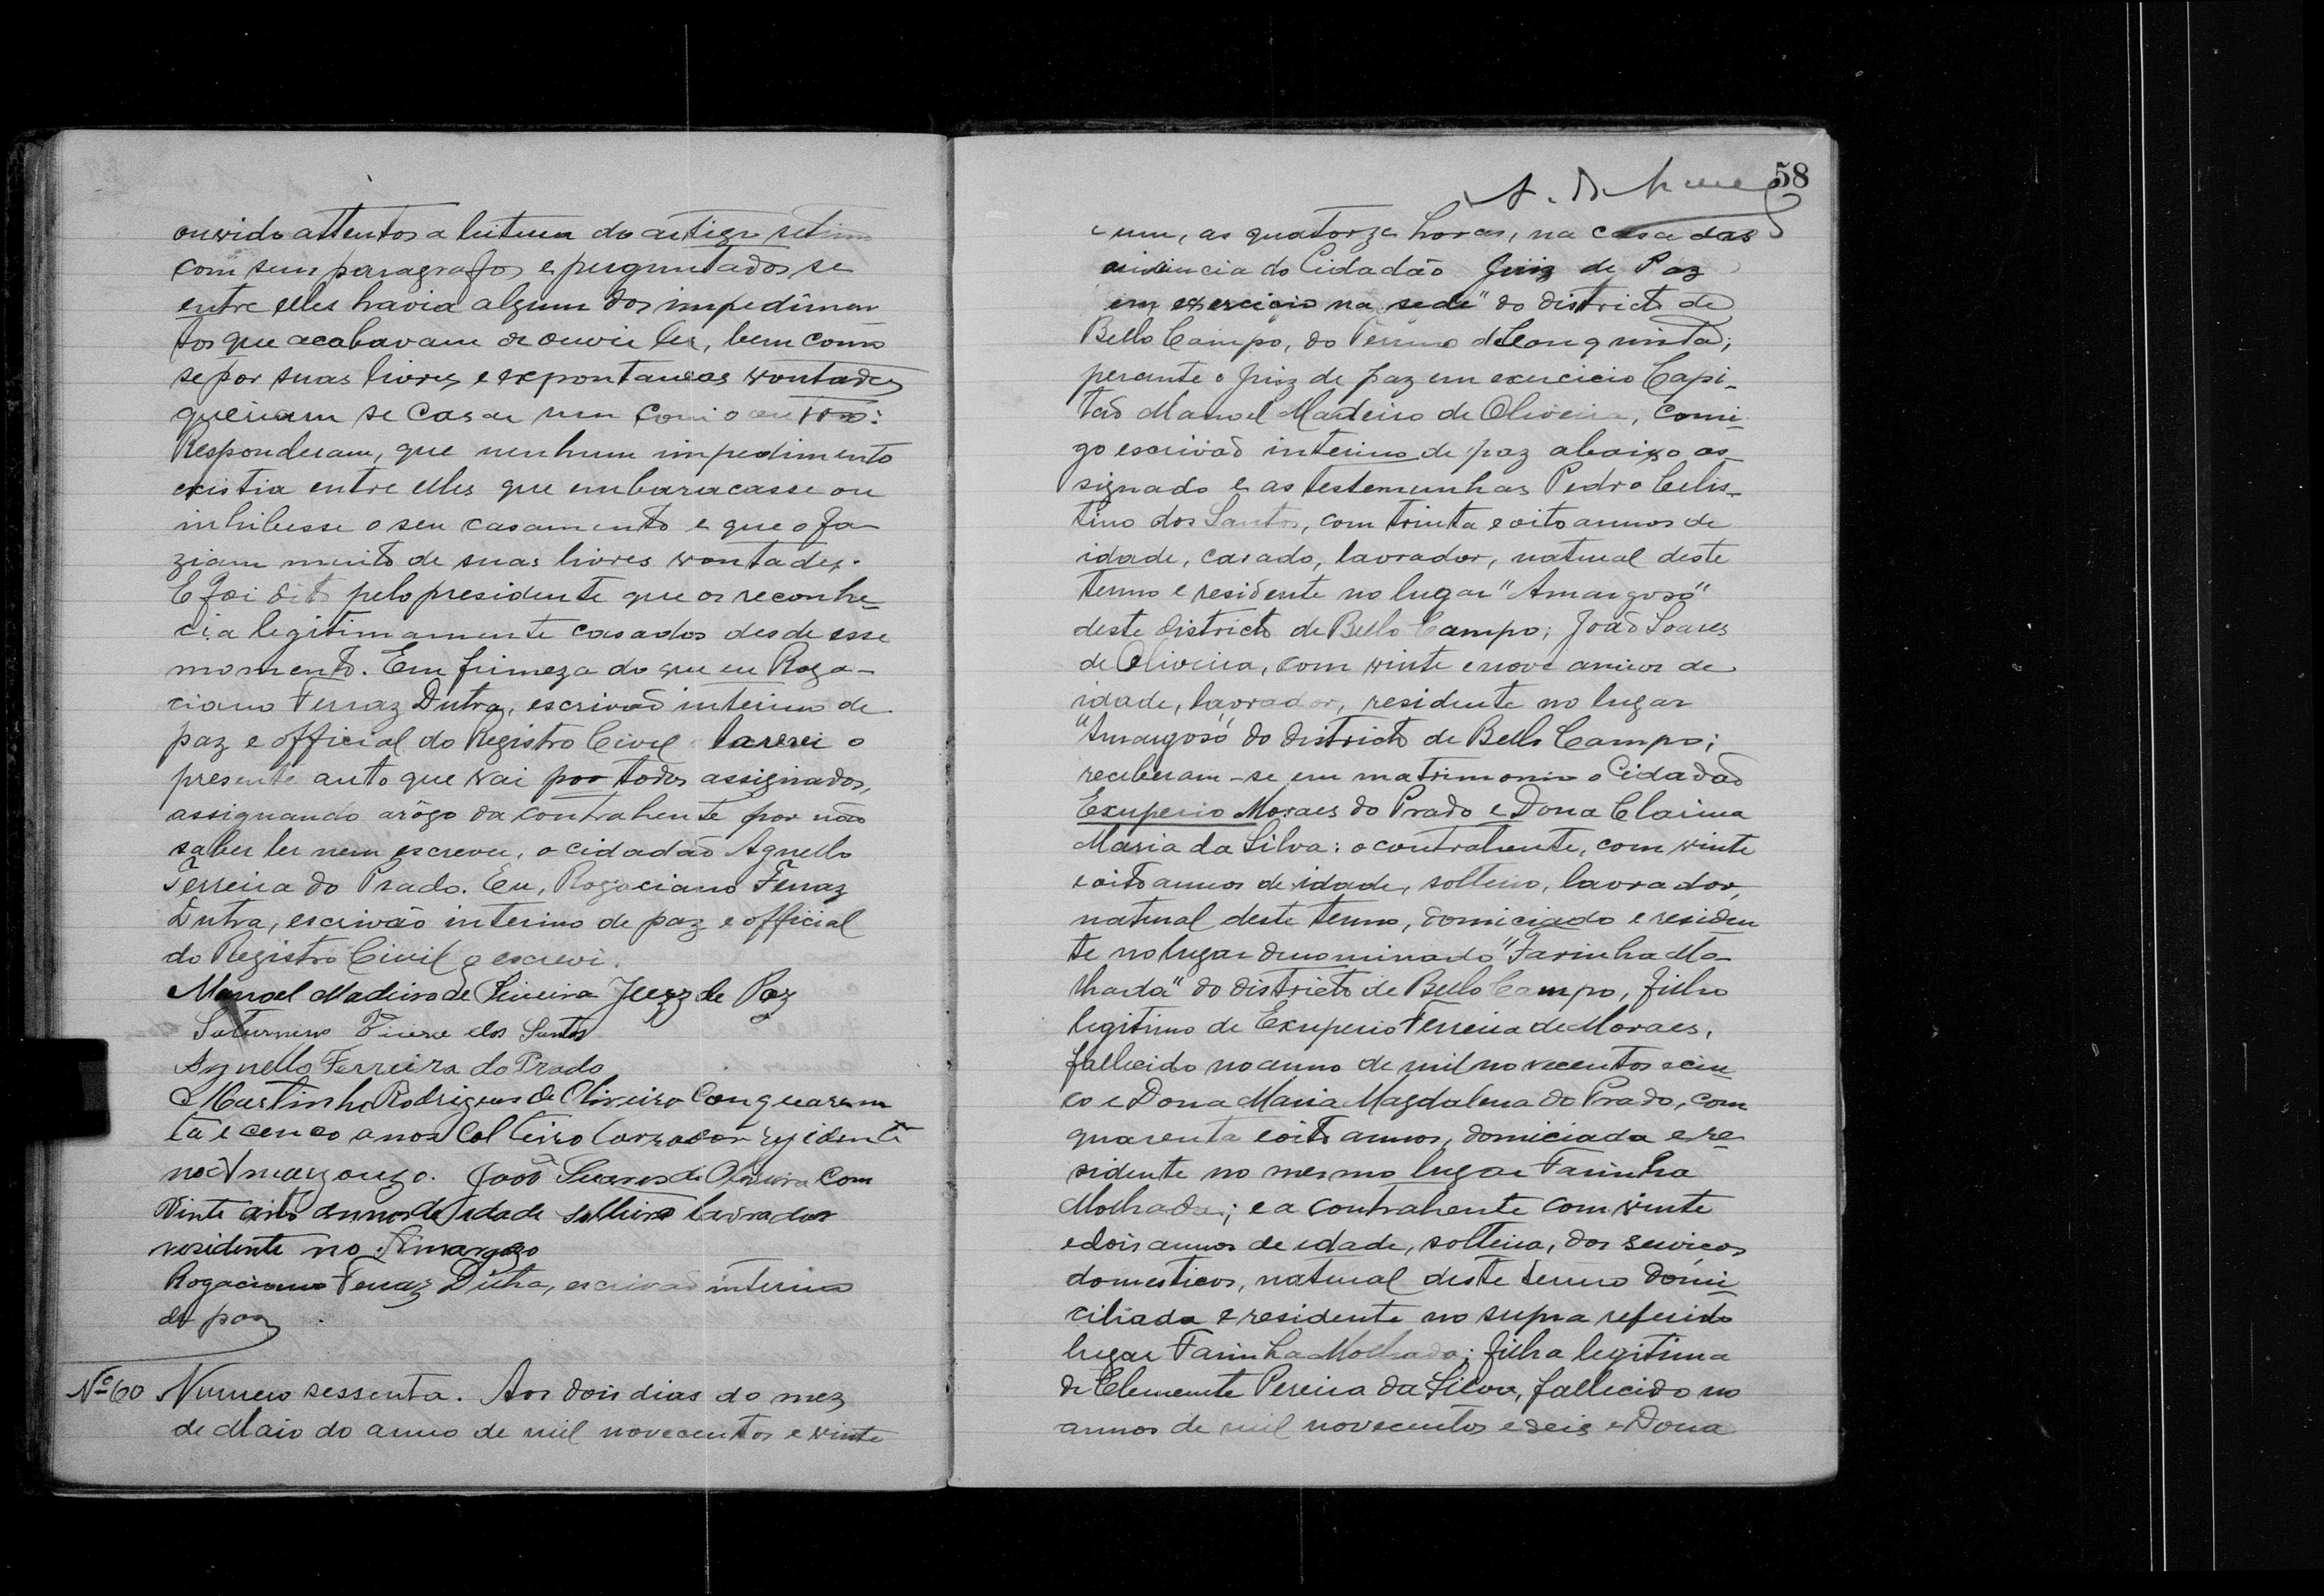 ouvido attentos a leitura do artigo setimo
com seus paragrafos e perguntados se
entre elles havia algum dos impedimen
tos que acabavam de ouvir ler, bem como
se por suas livres e expontaneas vontades
queriam se casar um com o outro:
Responderam, que nenhum impedimento
existia entre elles que embaracasse ou
inhibisse o seu casamento e que o fa
ziam muito de suas livres vontades.
E foi dito pelo presidente que os reconhe-
cia legitimamente casados desde esse
momento. Em firmeza do que eu Roga-
ciano Ferraz Dutra, escrivão interino de
paz e official do Registro Civil lavrei o
presente auto que vai por todos assignados,
assignando arôgo da contrahente por não
saber ler nem escrever, o cidadão Agnello
Ferreira do Prado. Eu, Rogaciano Ferraz
Dutra, escrivão interino de paz e official
do Registro Civil o escrevi.
Manoel Madeiro de Oliveira Juiz de Paz
Saturnino dos Santos
Agnello Ferreira do Prado
Martinho Rodrigues de Oliveira Con quarem
ta e cenco anos Colteiro lavrador rezidente
no Amargouzo. João Suares de Oliveira com
Vinte oito annos de edade solteiro lavrador
residente no Amargozo
Rogaciano Ferraz Dutra, escrivão interino
de paz
Nº 60 Numero sessenta. Aos dois dias do mez
de Maio do anno de mil novecentos e vinte
58
e um, as quatorze horas, na casa das
audiencia do Cidadão Juiz de Paz
em exercicio na sede" do districto de
Bello Campo, do Termo de Conquista;
perante o Juiz de paz em exercicio Capi-
tão Manoel Madeiro de Oliveira, comi-
go escrivão interino de paz abaixo as-
signado e as testemunhas Pedro Celis-
tino dos Santos, com trinta e oito annos de
idade, casado, lavrador, natural deste
termo e residente no lugar "Amargoso"
deste districto de Bello Campo; João Soares
de Oliveira, com vinte e nove annos de
idade, lavrador, residente no lugar
"Amargoso" do districto de Bello Campo;
receberam-se em matrimonio o Cidadão
Exuperio Moraes do Prado e Dona Clarina
Maria da Silva: o contrahente, com vinte
e oito annos de idade, solteiro, lavrador,
natural deste termo, domiciado e residen
te no lugar denominado "Farinha Mo-
lhada" do districto de Bello Campo, filho
legitimo de Exuperio Ferreira de Moraes,
fallecido no anno de mil novecentos e cin-
co e Dona Maria Magdalena do Prado, com
quarenta e oito annos, domiciada e re-
sidente no mesmo lugar Farinha
Molhada; e a contrahente com vinte
e dois annos de edade, solteira, dos serviços
domesticos, natural deste termo domi-
ciliada e residente no supra referido
lugar Farinha Molhada; filha legitima
de Clemente Pereira da Silva, fallecido no
annos de mil novecentos e seis e Dona